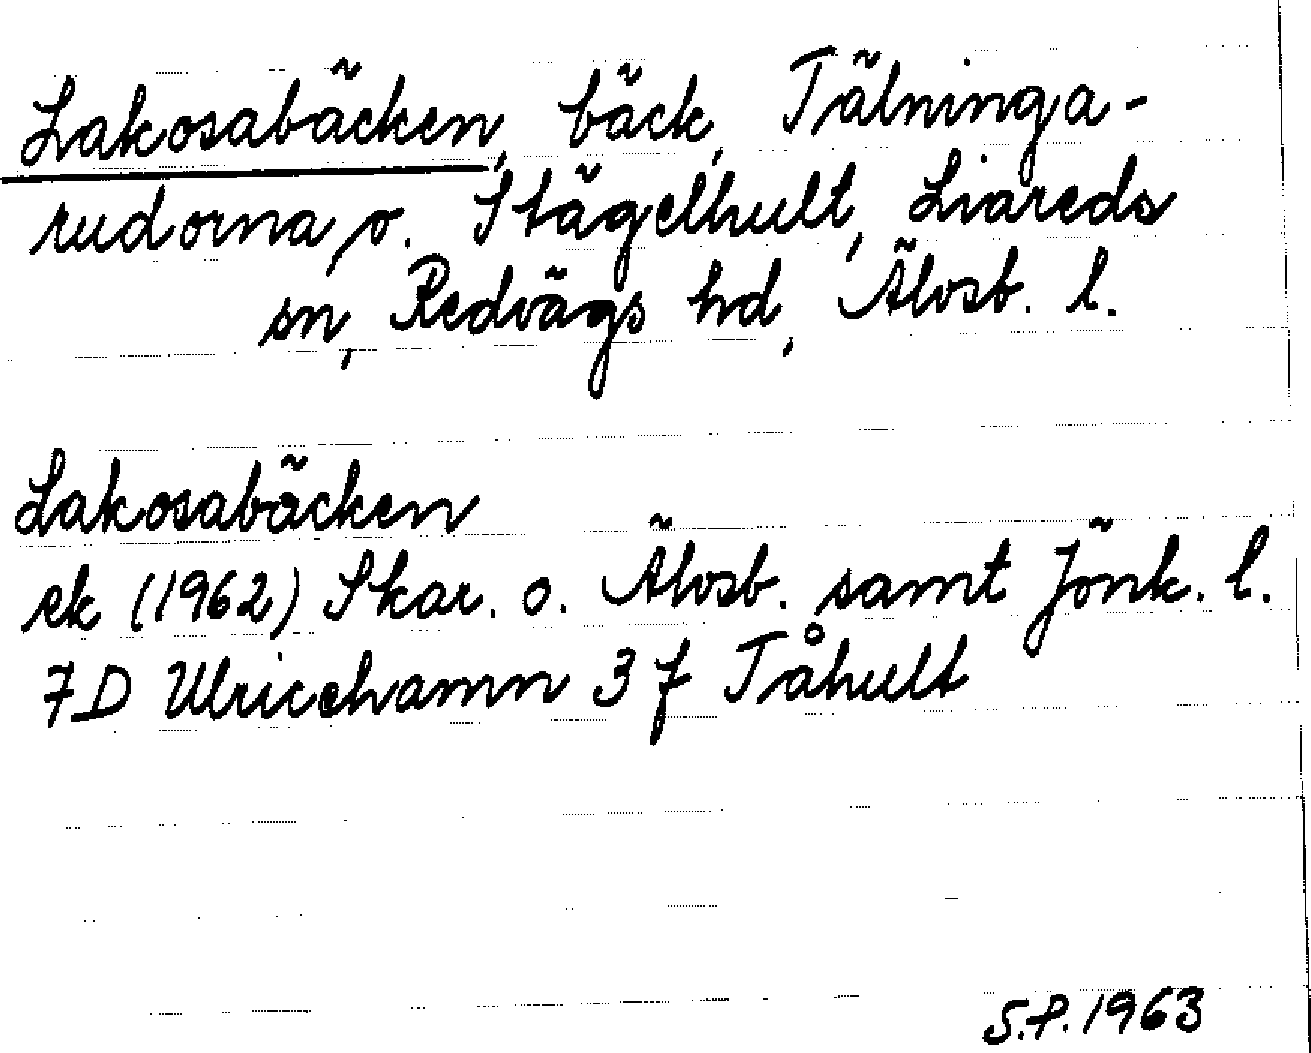 Lakosabäcken, bäck, Tälninga-
rudorna, o. Stägelhult, Liareds
sn, Redvägs hd, Älvsb. l.
Lakosabäcken
ek (1962) Skar. o. Älvsb. samt Jönk. l.
7D Ulricehamn 3 f Tåhult
S.P. 1963